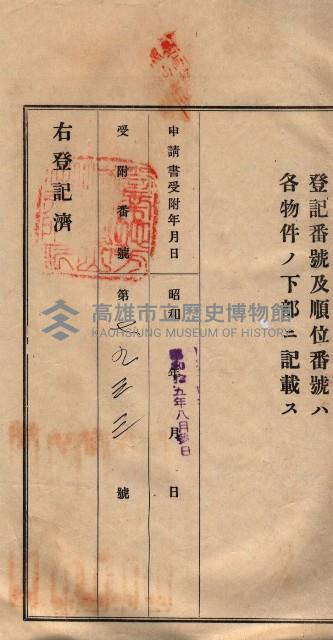 登記番號及順位番號ハ
各物件ノ下部ニ記載ス
申請書受附年月日 昭和 年 月 日
五年八月參日
受附番號 第七九三三號
右登記濟
高雄市立歷史博物館
KAOHSIUNG MUSEUM OF HISTORY